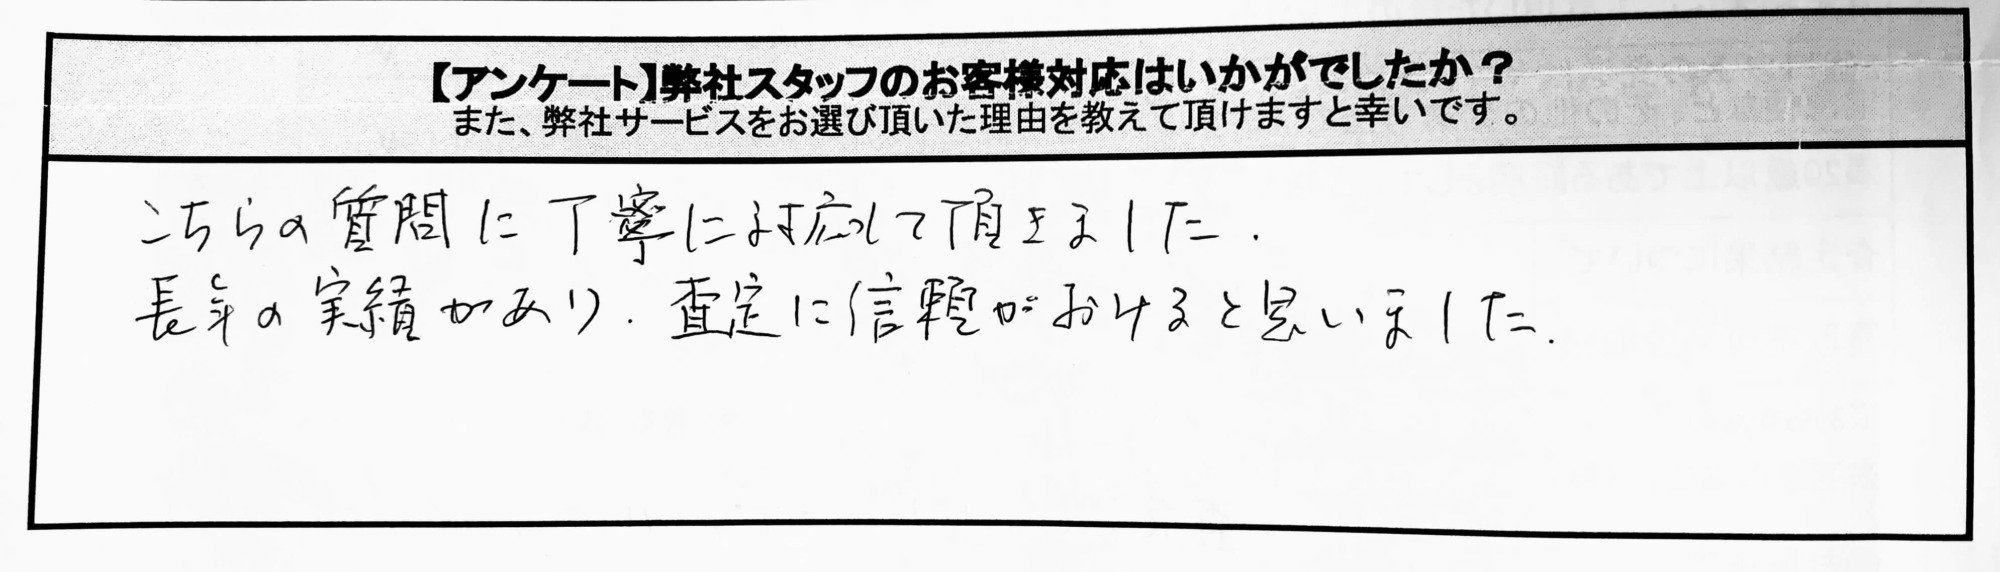 【アンケート】弊社スタッフのお客様対応はいかがでしたか？
また、弊社サービスをお選び頂いた理由を教えて頂けますと幸いです。
こちらの質問に丁寧に対応して頂きました.
長年の実績があり. 査定に信頼がおけると思いました.